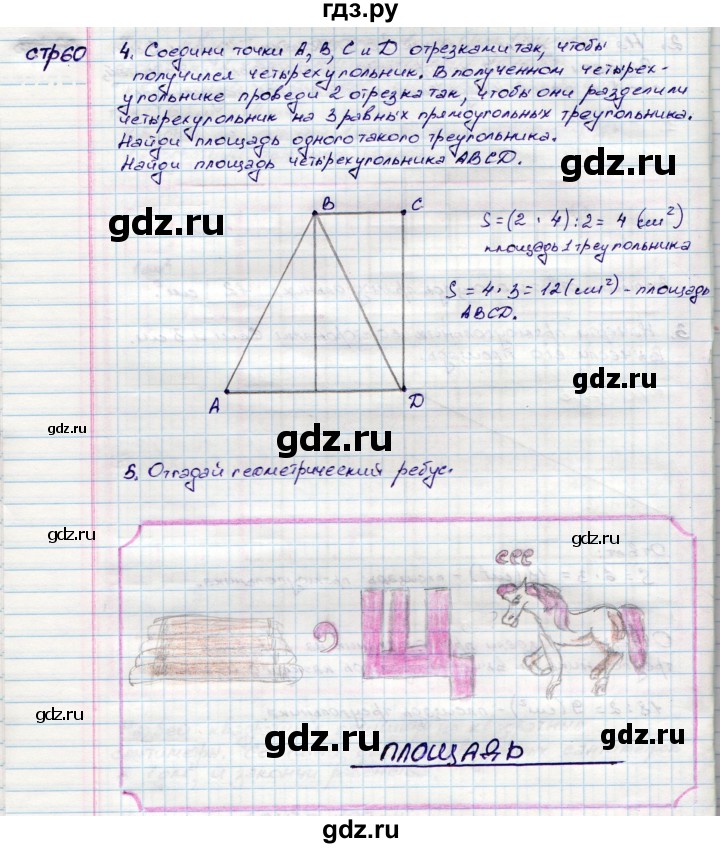 гдз.ру
стр60
4. Соедини точки A, B, C и D отрезками так, чтобы
получился четырехугольник. В полученном четырех-
угольнике проведи 2 отрезка так, чтобы они разделили
четырехугольник на 3 равных прямоугольных треугольника.
Найди площадь одного такого треугольника.
Найди площадь четырехугольника ABCD.
gdz.ru
gdz.ru
B
C
S=(2 · 4):2= 4 (см²)
площадь 1 треугольника
S = 4·3=12(см²)-площадь
ABCD.
gdz.ru
A
D
gdz.ru
gdz.ru
5. Отгадай геометрический ребус.
gdz.ru
gdz.ru
ССС
,
Щ
gdz.ru
gdz.ru
gdz.ru
ПЛОЩАДЬ
gdz.ru